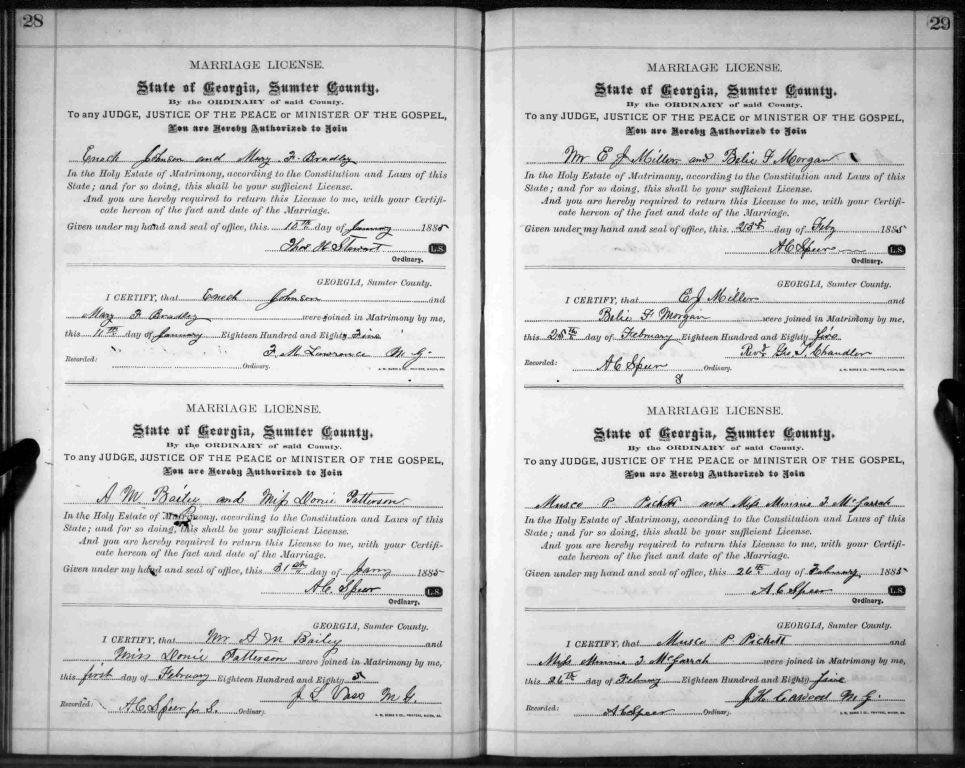 28
MARRIAGE LICENSE.
State of Georgia, Sumter County.
By the ORDINARY of said County.
To any JUDGE, JUSTICE OF THE PEACE or MINISTER OF THE GOSPEL,
You are Hereby Authorized to Join
Enoch Johnson and Mary F. Bradley
In the Holy Estate of Matrimony, according to the Constitution and Laws of this
State; and for so doing, this shall be your sufficient License.
And you are hereby required to return this License to me, with your Certifi-
cate hereon of the fact and date of the Marriage.
Given under my hand and seal of office, this day of January 1885
Thos H Stewart L.S.
Ordinary.
GEORGIA, Sumter County.
I CERTIFY, that Enoch Johnson and
Mary F Bradley were joined in Matrimony by me,
this day of January Eighteen Hundred and Eighty Five
F. M. Lawrence M G.
Recorded: Ordinary.
MARRIAGE LICENSE.
State of Georgia, Sumter County.
By the ORDINARY of said County.
To any JUDGE, JUSTICE OF THE PEACE or MINISTER OF THE GOSPEL,
You are Hereby Authorized to Join
A M Bailey and Miss Donie Patterson
In the Holy Estate of Matrimony, according to the Constitution and Laws of this
State; and for so doing, this shall be your sufficient License.
And you are hereby required to return this License to me, with your Certifi-
cate hereon of the fact and date of the Marriage.
Given under my hand and seal of office, this 31st day of Jany 1885
A.C. Speer L.S.
Ordinary.
GEORGIA, Sumter County.
I CERTIFY, that Mr A M Bailey and
Miss Donie Patterson were joined in Matrimony by me,
this first day of February Eighteen Hundred and Eighty 5
J L M G.
Recorded: A.C. Speer Ordinary.
29
MARRIAGE LICENSE.
State of Georgia, Sumter County.
By the ORDINARY of said County.
To any JUDGE, JUSTICE OF THE PEACE or MINISTER OF THE GOSPEL,
You are Hereby Authorized to Join
Mr E J Miller and Belie F Morgan
In the Holy Estate of Matrimony, according to the Constitution and Laws of this
State; and for so doing, this shall be your sufficient License.
And you are hereby required to return this License to me, with your Certifi-
cate hereon of the fact and date of the Marriage.
Given under my hand and seal of office, this day of Feby 1885
A C Speer L.S.
Ordinary.
GEORGIA, Sumter County.
I CERTIFY, that E J Miller and
Belie F Morgan were joined in Matrimony by me,
this 25th day of February Eighteen Hundred and Eighty five
Revd Geo T. Chandler
Recorded: A C Speer Ordinary.
8
MARRIAGE LICENSE.
State of Georgia, Sumter County.
By the ORDINARY of said County.
To any JUDGE, JUSTICE OF THE PEACE or MINISTER OF THE GOSPEL,
You are Hereby Authorized to Join
Musco P. Pickett and Miss Minnie J. McGarrah
In the Holy Estate of Matrimony, according to the Constitution and Laws of this
State; and for so doing, this shall be your sufficient License.
And you are hereby required to return this License to me, with your Certifi-
cate hereon of the fact and date of the Marriage.
Given under my hand and seal of office, this 26th day of February 1885
A.C. Speer L.S.
Ordinary.
GEORGIA, Sumter County.
I CERTIFY, that Musco P Pickett and
Miss Minnie J McGarrah were joined in Matrimony by me,
this 26th day of February Eighteen Hundred and Eighty five
J. H. M. G.
Recorded: A C Speer Ordinary.